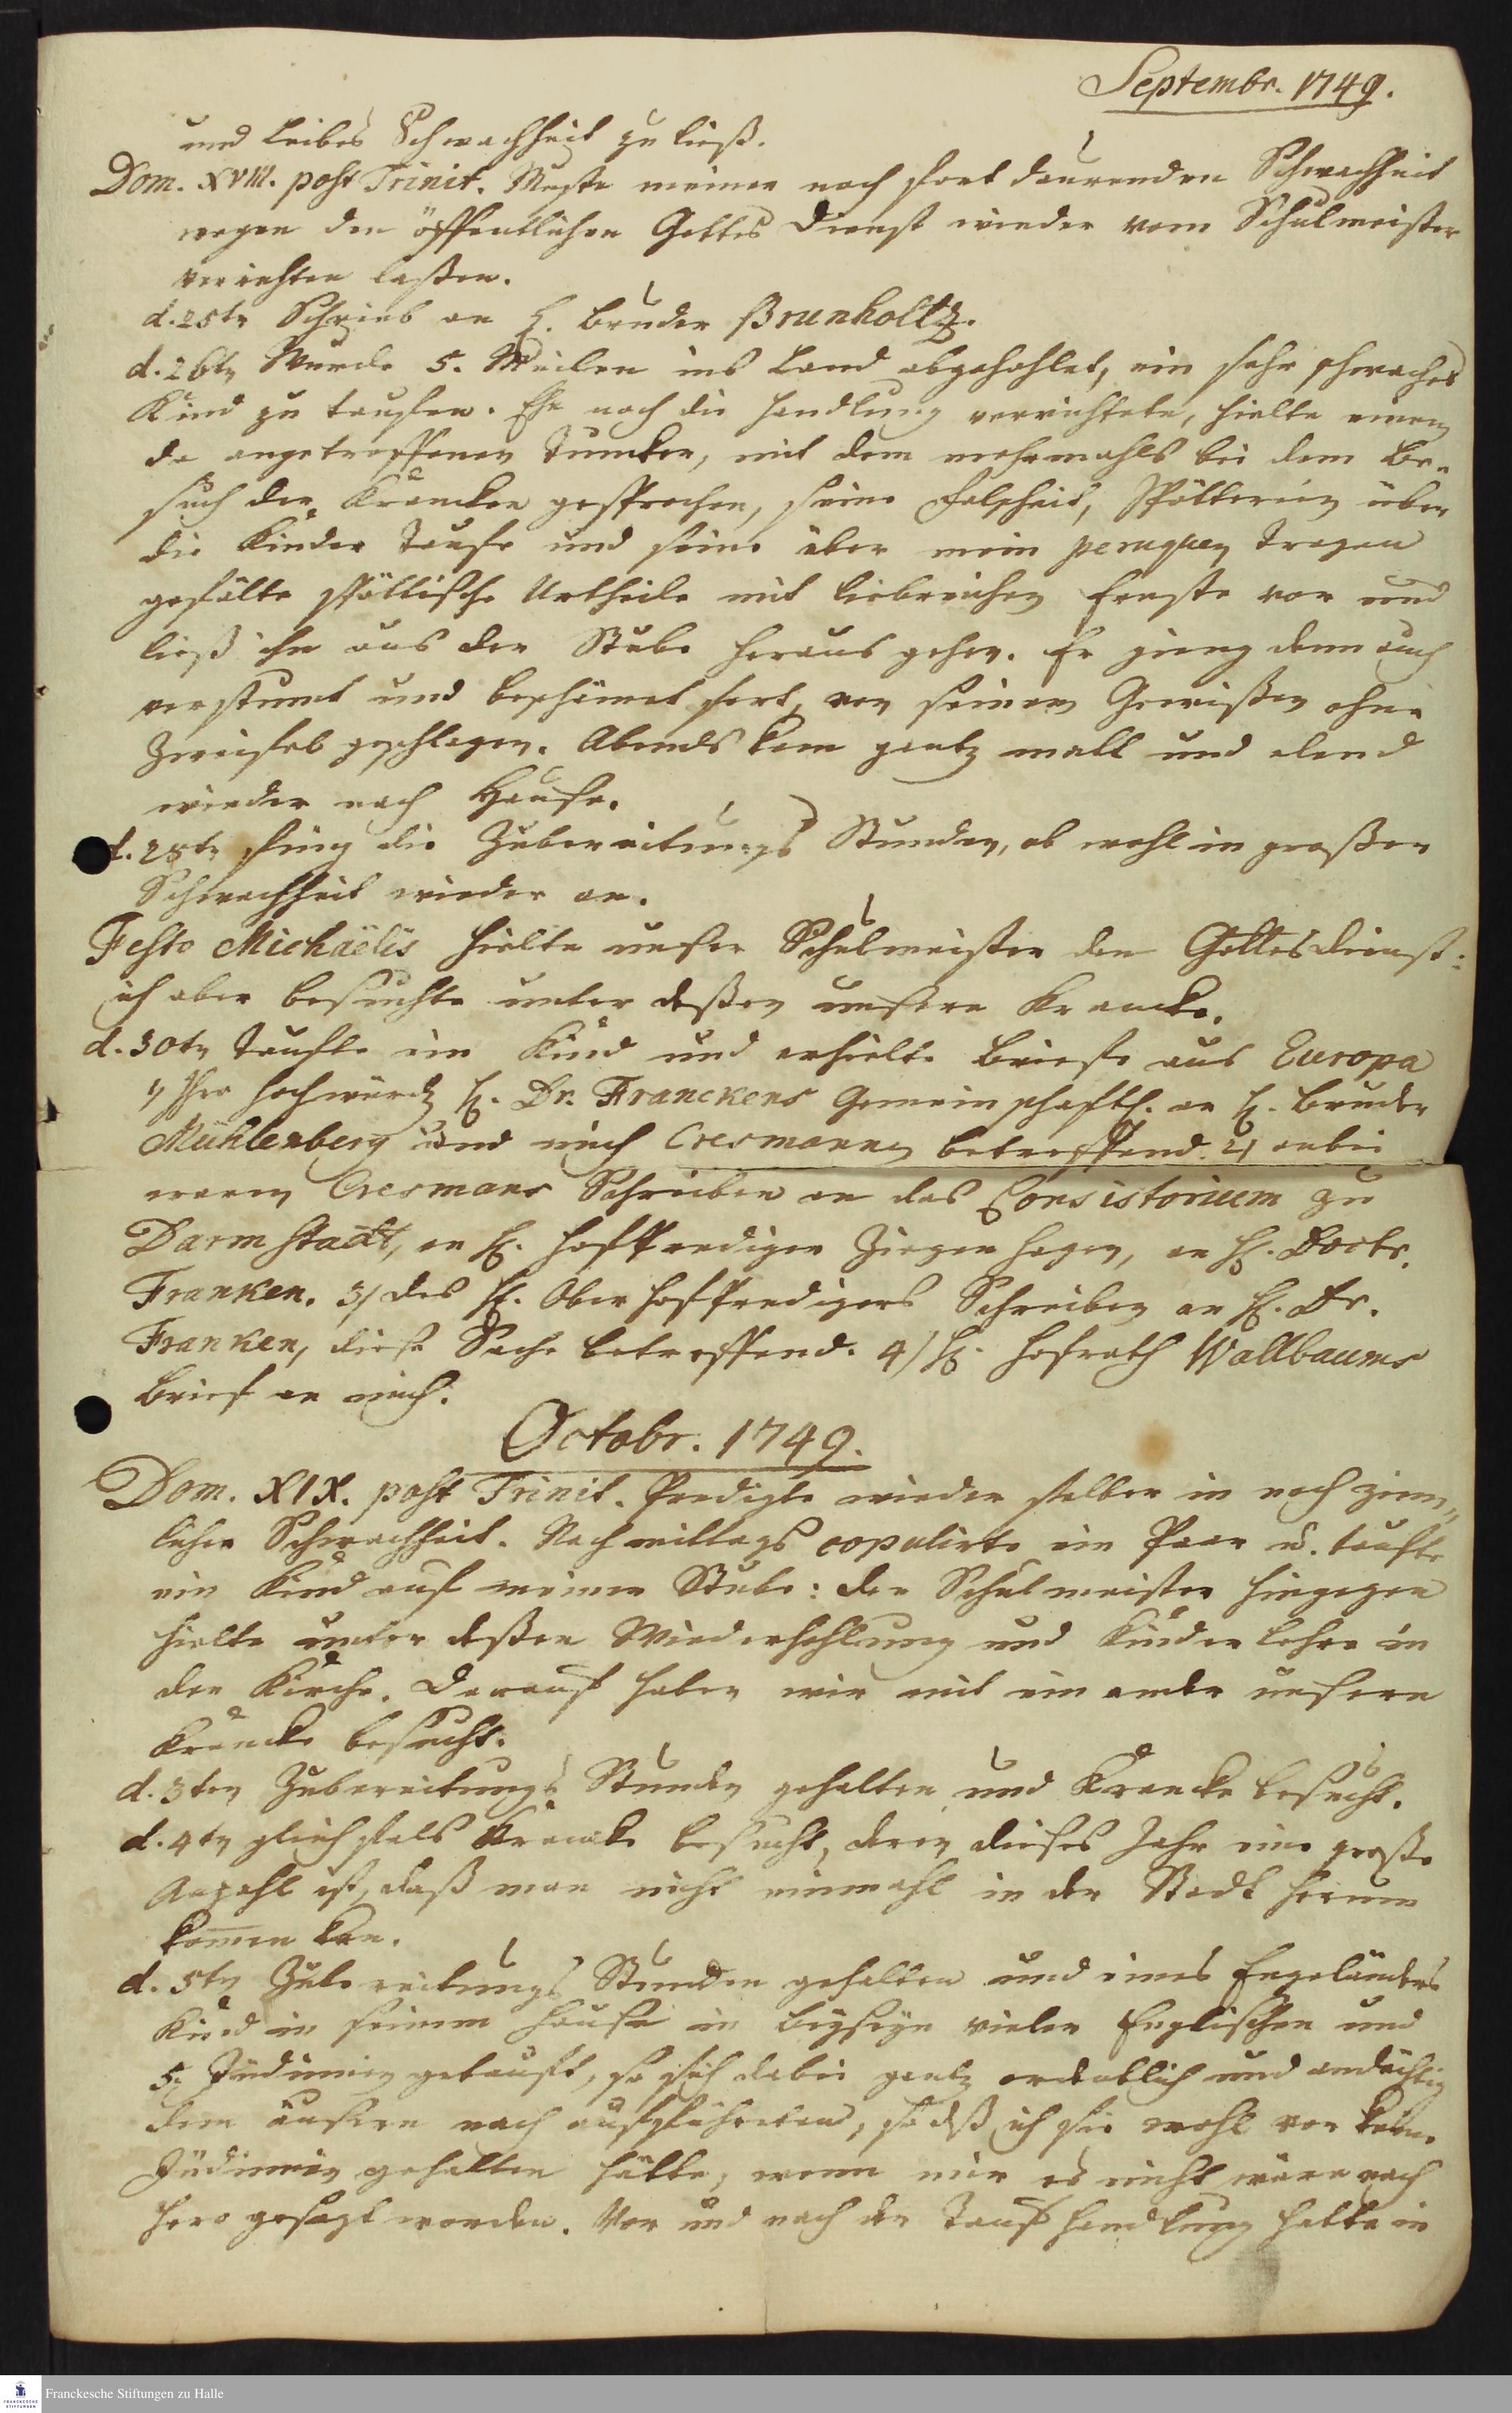 Septembr. 1749.
und Leibes Schwachheit zu ließ.
Dom. XVIII. post Trinit. Muste meiner noch fort daurenden Schwachheit
wegen den öffentlichen Gottes Dienst wieder vom Schulmeister
verrichten laßen.
d. 25tn Schrieb an H. Bruder Brunholtz.
d. 26tn Wurde 5. Meilen ins Land abgehohlet, ein sehr schwaches
Kind zu tauffen. Ehe noch die Handlung verrichtete, hielte einem
da angetroffenen Tuncker, mit dem mehrmahls bei dem Be-
such der Krancken gesprochen, seine Falschheit, Spötterein über
die Kinder Taufe und seine über mein peruquen tragen
gefälte spöttische Urtheile mit liebreichen Ernste vor und
ließ ihn aus der Stube heraus gehen. Er gieng denn auch
verstumt und beschämet fort, von seinem Gewißen ohne
Zweifel geschlagen. Abends kam gantz matt und elend
wieder nach Hause.
d. 28tn fing die Zubereitungs Stunden, ob wohl in großer
Schwachheit wieder an.
Festo Michaëlis hielte unser Schulmeister den Gottesdienst:
ich aber besuchte unter deßen unsere Krancke.
d. 30tn Taufte ein Kind und erhielte Briefe aus Europa
1) Ihro Hochwürd H. Dr. Franckens Gemeinschaftl. an H. Bruder
Mühlenberg und mich Cresmann betreffend. 2) anbei
waren Cresmans Schreiben an das Consistorium zu
Darmstadt, an H. Hofprediger Ziegenhagen, an H. Doctr.
Franken. 3) des H. Ober Hofpredigers Schreiben an H. Dr.
Franken, diese Sache betreffend. 4) H. Hofrath Wallbaums
Brief an mich.
Octobr. 1749.
Dom. XIX. post Trinit. Predigte wieder selber in noch ziem-
licher Schwachheit. Nachmittags copulirte ein Paar u. taufte
ein Kind auf meiner Stube: der Schulmeister hingegen
hielte unter deßen Wiederhohlung und Kinder Lehre in
der Kirche. Darauf haben wir mit ein ander unsere
Krancke besucht.
d. 3ten Zubereitungs Stunden gehalten und Krancke besucht.
d. 4tn gleichfals Krancke besucht, deren dieses Jahr eine große
Anzahl ist, daß man nicht einmahl in der Stadt herum
kommen kan.
d. 5tn Zubereitungs Stunden gehalten und eines Engeländers
Kind in seinem Hause in Beyseyn vieler Englischen und
5. Jüdinnen getauft, so sich dabei gantz ordentlich und andächtig
dem äusern nach aufführeten, so daß ich sie wohl vor keine
Jüdinnen gehalten hätte, wenn mir es nicht wäre nach
hero gesagt worden. Vor und nach der Tauf Handlung hatte in
Franckesche Stiftungen zu Halle